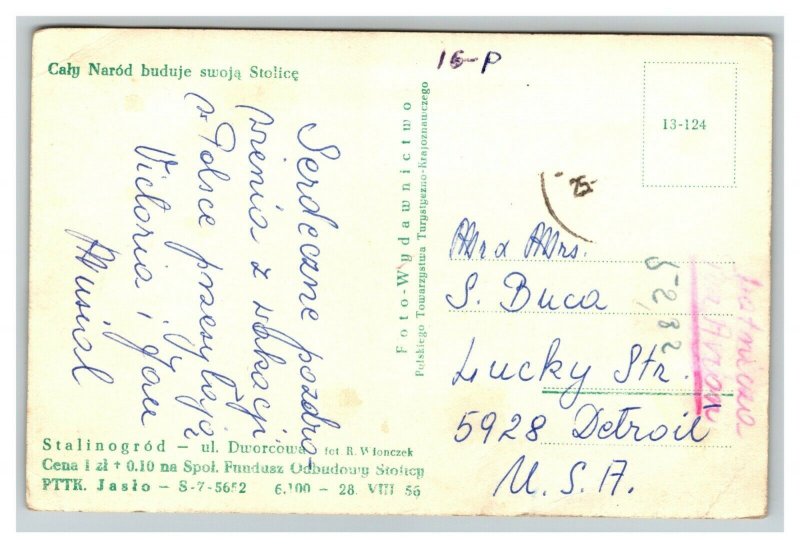 Cały Naród buduje swoją Stolicę
16-P
13-124
Serdeczne pozdro-
wienia z wakacji
w Polsce przesyłają
Victoria i Jan
Musial
Foto-Wydawnictwo
Polskiego Towarzystwa Turystyczno-Krajoznawczego
25-
Mr & Mrs.
S. Buca
Lucky Str.
5928 Detroit
U.S.A.
52,82
Stalinogród — ul. Dworcowa fot R. Wionczek
Cena 1 zł + 0.10 na Społ. Fundusz Odbudowy Stolicy
PTTK. Jasło — S-7-5652 6.100 — 28. VIII 56